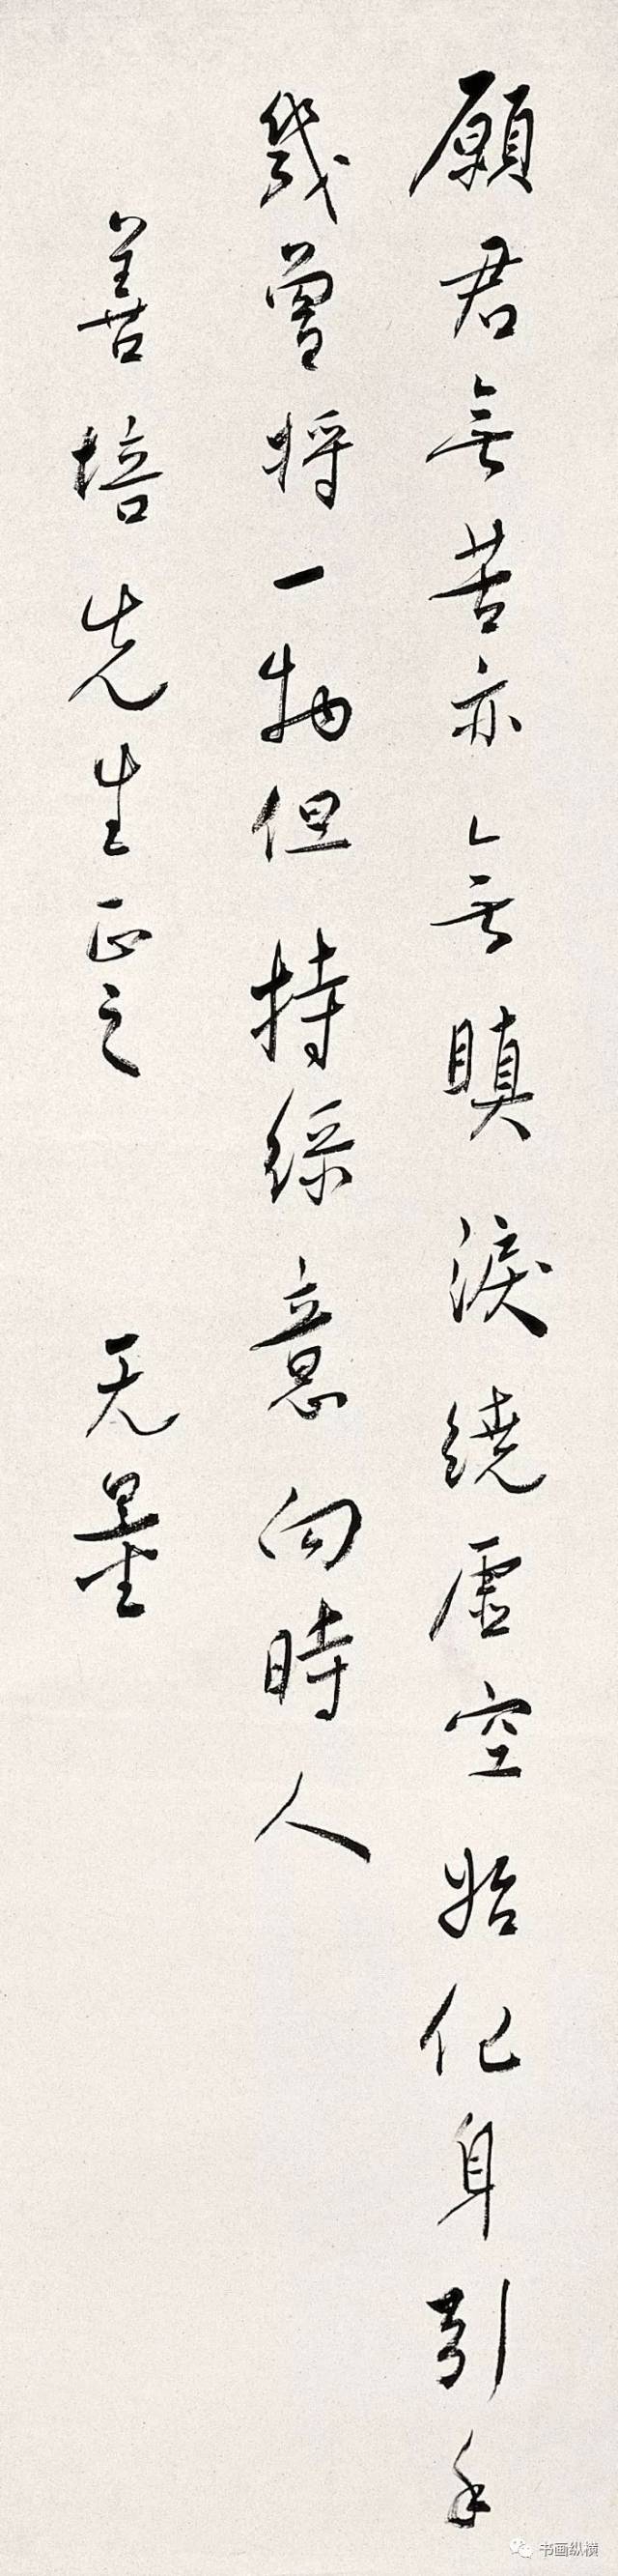 願君無苦亦無瞋淚繞虛空始化身引手
幾曾將一物但持綵意向時人
善培先生正之
无量
书画纵横